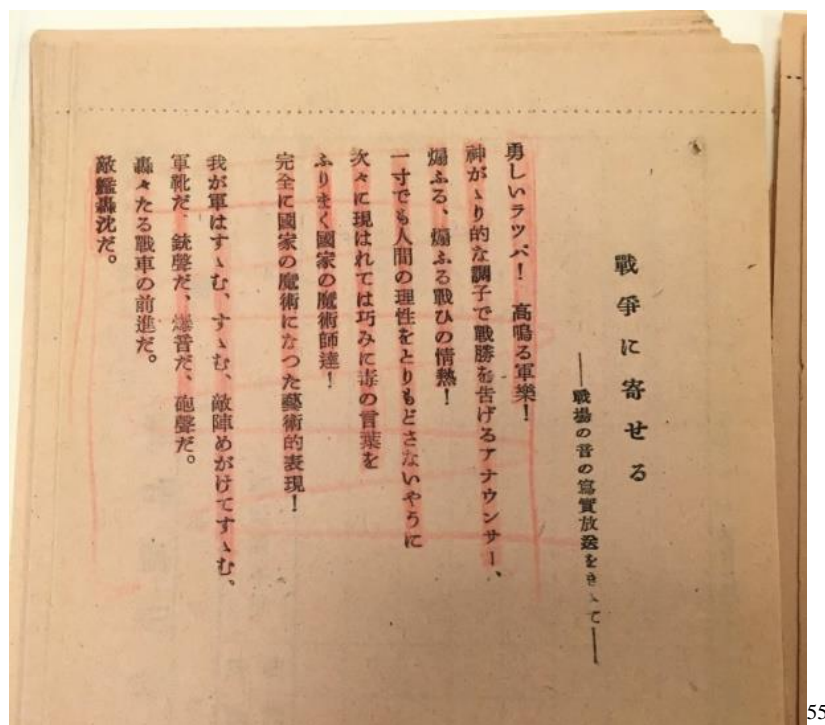 戰爭に寄せる
――戰場の音の寫實放送をきゝて――
勇しいラツパ！　高鳴る軍樂！
神がゝり的な調子で戰勝を告げるアナウンサー、
煽ふる、煽ふる戰ひの情熱！
一寸でも人間の理性をとりもどさないやうに
次々に現はれては巧みに毒の言葉を
ふりまく國家の魔術師達！
完全に國家の魔術になつた藝術的表現！
我が軍はすゝむ、すゝむ、敵陣めがけてすゝむ、
軍靴だ、銃聲だ、爆音だ、砲聲だ。
轟々たる戰車の前進だ。
敵艦轟沈だ。
55